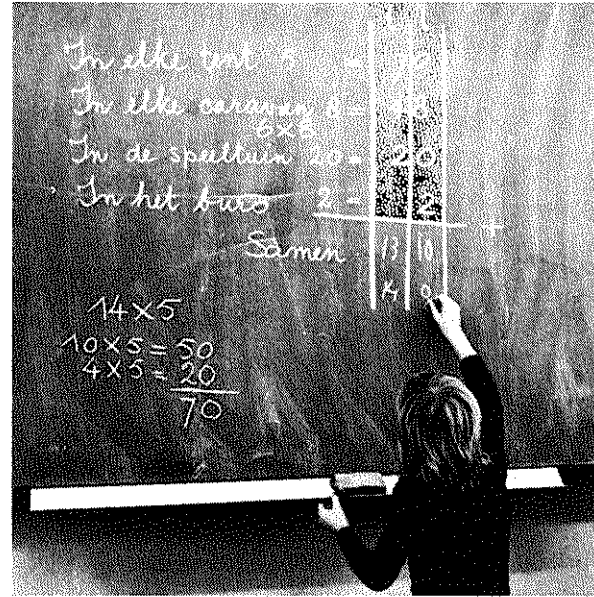 In elke tent 5 = 70
In elke caravan 8 = 48
6x8
In de speeltuin 20 = 20
In het buro 2 = 2
+
Samen 13 10
14 0
14x5
10x5 = 50
4x5 = 20
70